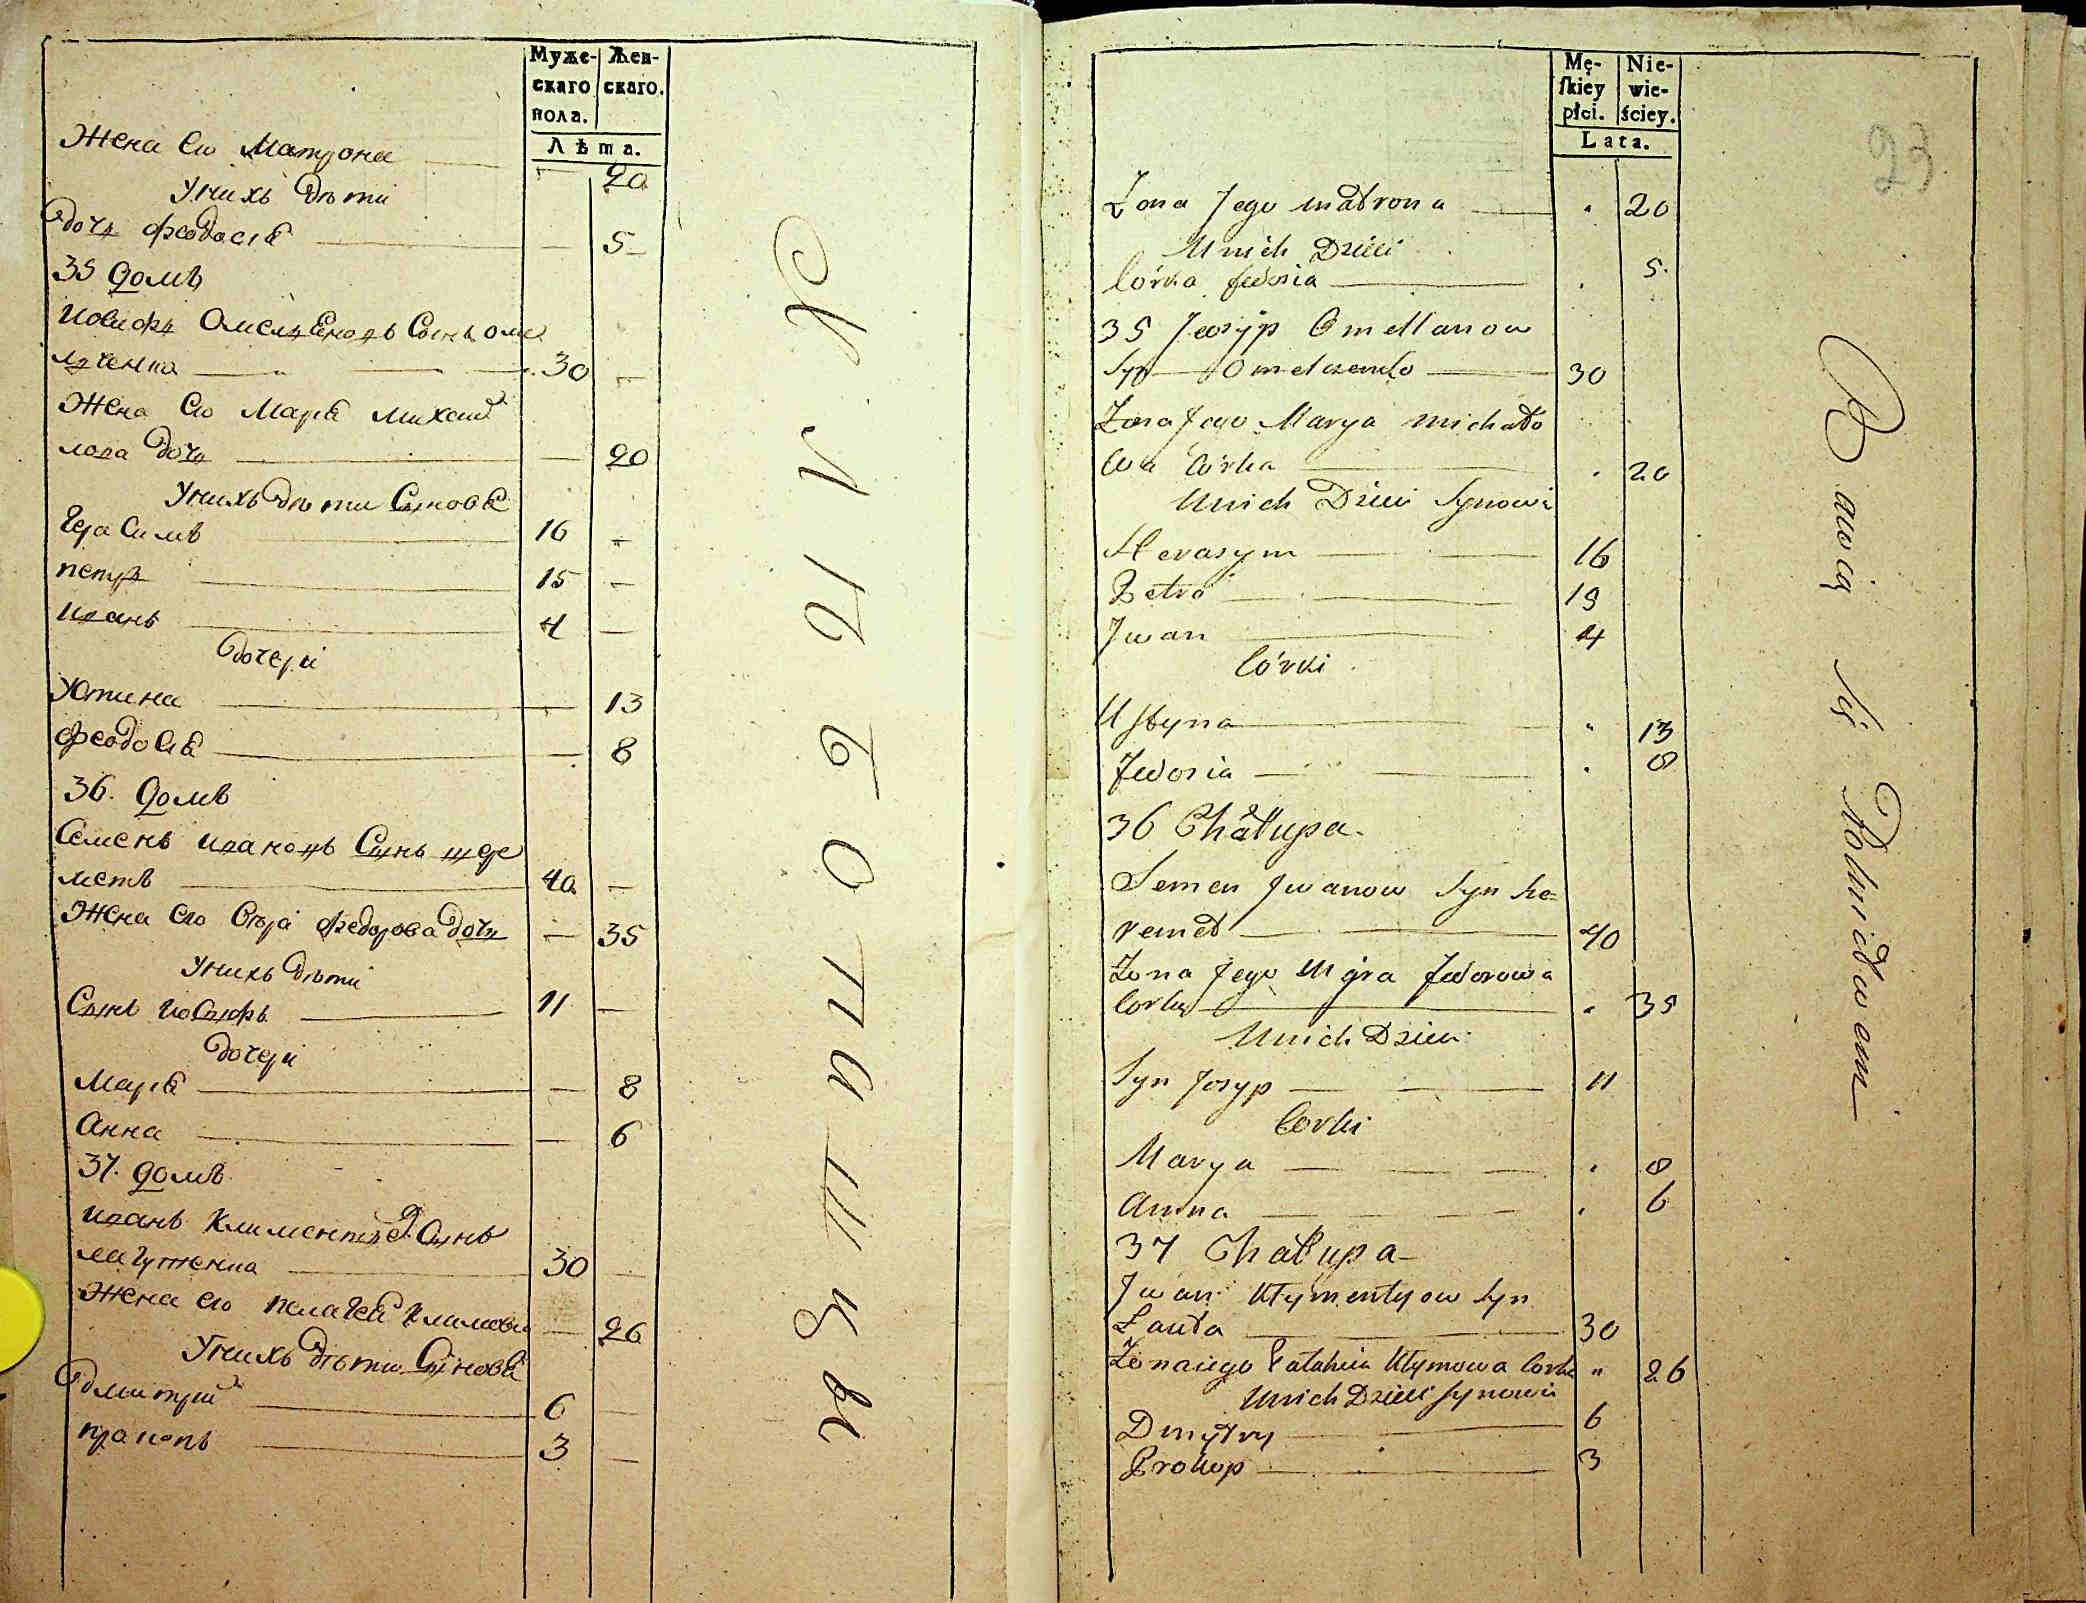 Муже- Жен-
скаго скаго.
пола.
Лѣта.
Жена его Матрона — 20
Унихъ дѣти
дочь Феодосія — 5
35 домъ
Іосифъ Омеляновъ Сынъ оме
лченко — 30 —
Жена его Марія Михаи
лова дочь — 20
Унихъ дѣти Синовѣ
Герасимъ 16 —
петръ 15 —
иванъ 4 —
дочери
Устина — 13
Феодосія — 8
36. домъ
Семенъ ивановъ Сынъ шере
метъ 40 —
Жена его Федорова дочь — 35
Унихъ дѣти
Сынъ іосифъ 11 —
дочери
Марія — 8
Анна — 6
37. домъ
иванъ Климентіевъ Сынъ
30 —
Жена его пелагея Климова — 26
Унихъ дѣти Синовѣ
дмитрій 6 —
прокопъ 3 —
ХЛѢБОПАШЦЫ
Mę- Nie-
skiey wie-
płci. ściey.
Lata.
23
Żona Jego Matrona — 20
Unich Dzieci
Córka Fedosia — 5
35 Josyp Omellanow
Syn Omelczenko — 30
Żona Jego Marya Michało
wa Córka — 20
Unich Dzieci Synowi
Herasym — 16
Petro — 19
Jwan — 4
Córki
Ustyna — 13
Fedosia — 8
36 Chałupa.
Semen Jwanow Syn Sze=
remet — 40
Żona Jego Fedorowa
Corka — 35
Unich Dzieci
Syn Josyp — 11
Corki
Marya — 8
Anna — 6
37 Chałupa
Jwan Kłymentyow Syn
30
Żona iego Pałahia Kłymowa Corka " 26
Unich Dzieci Synowie
Dmytry — 6
Prokop — 3
Bawią się Rolnictwem